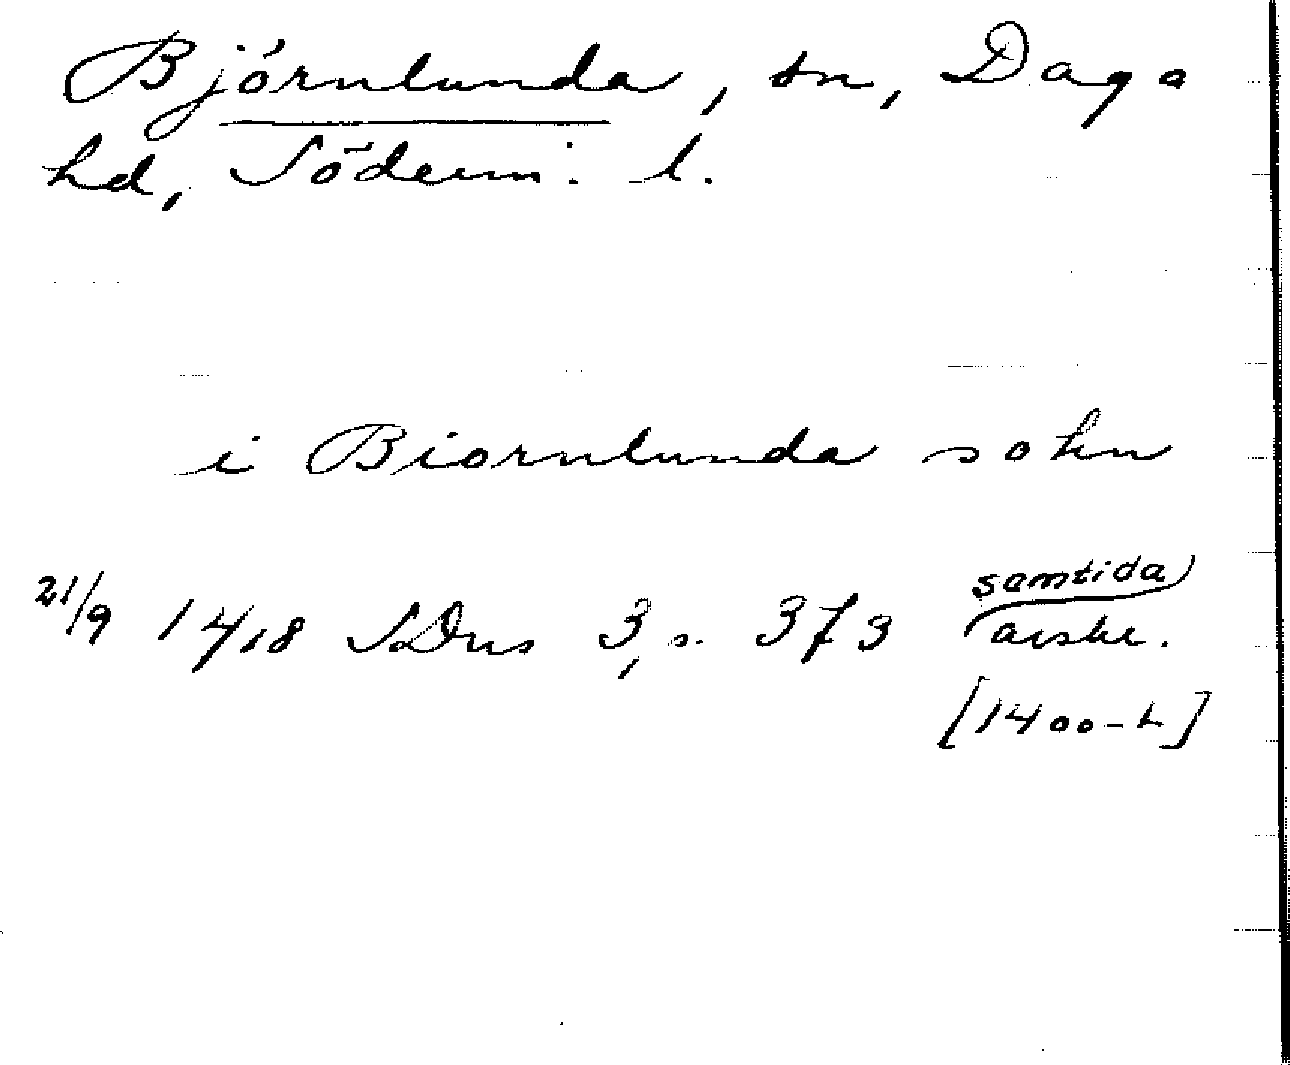 Björnlunda, sn, Daga
hd, Söderm: l.
i Biornlunda sokn
21/9 1418 SDns 3, s. 373 samtida
avskr.
[1400-t]